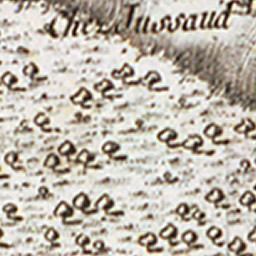 Chez Jussaud